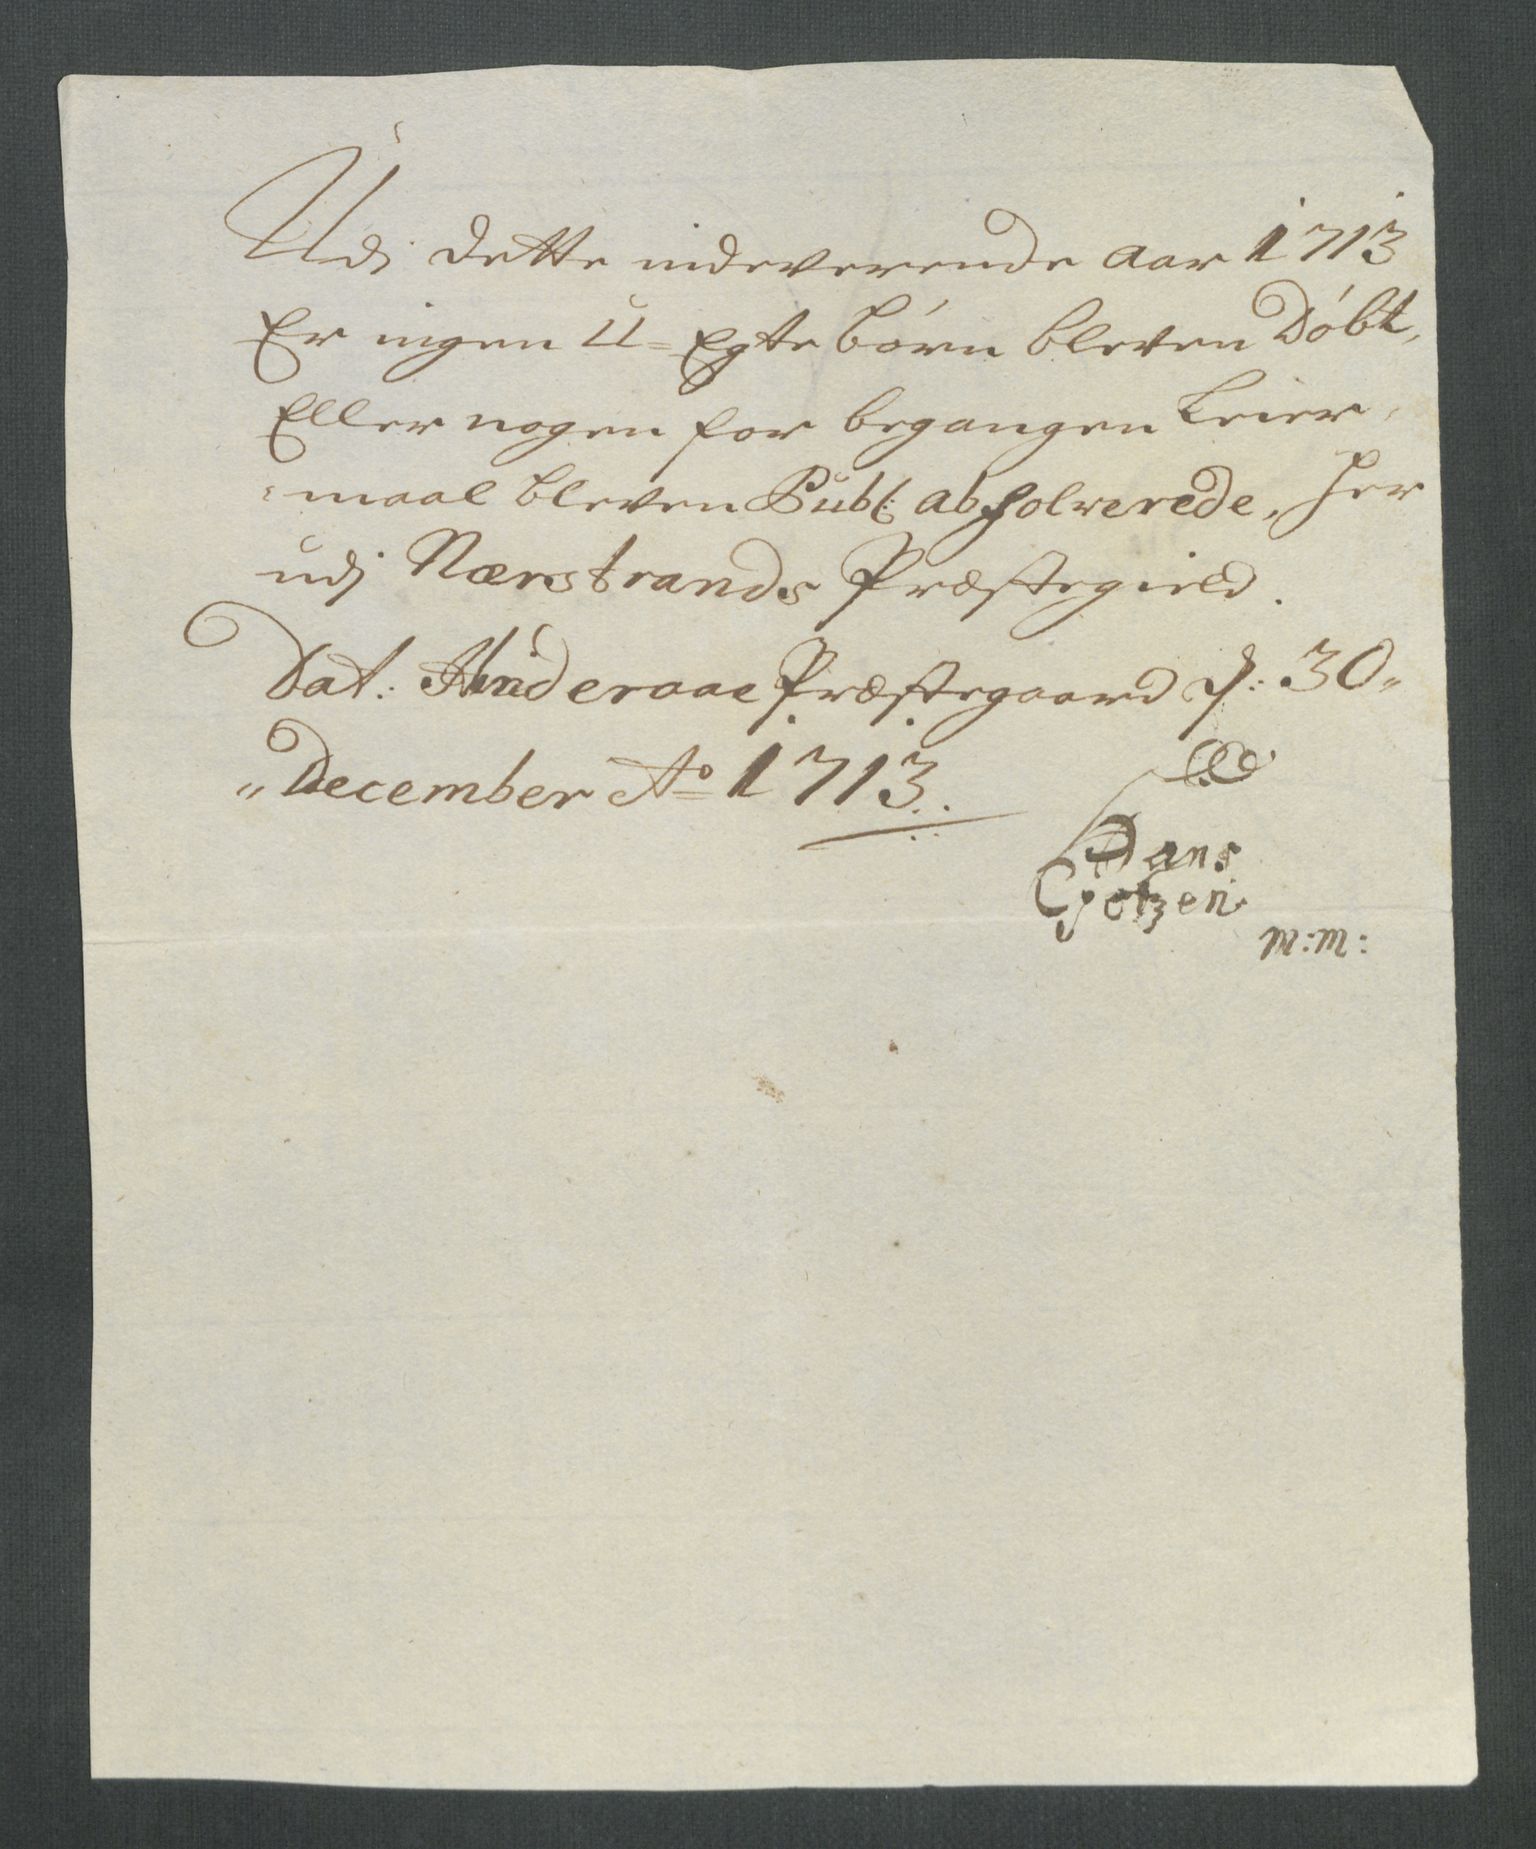 Udj dette indeverende aar 1713
Er ingen U=Egte börn bleven Döbt,
Eller nogen for begangen Leier=
=maal bleven Publ: absolverede, her
udj Nærstrands Præstegield.
Dat. Hinderaae Præstegaard d: 30.
December Ao 1713.
Hans
Gotzen
m:m: